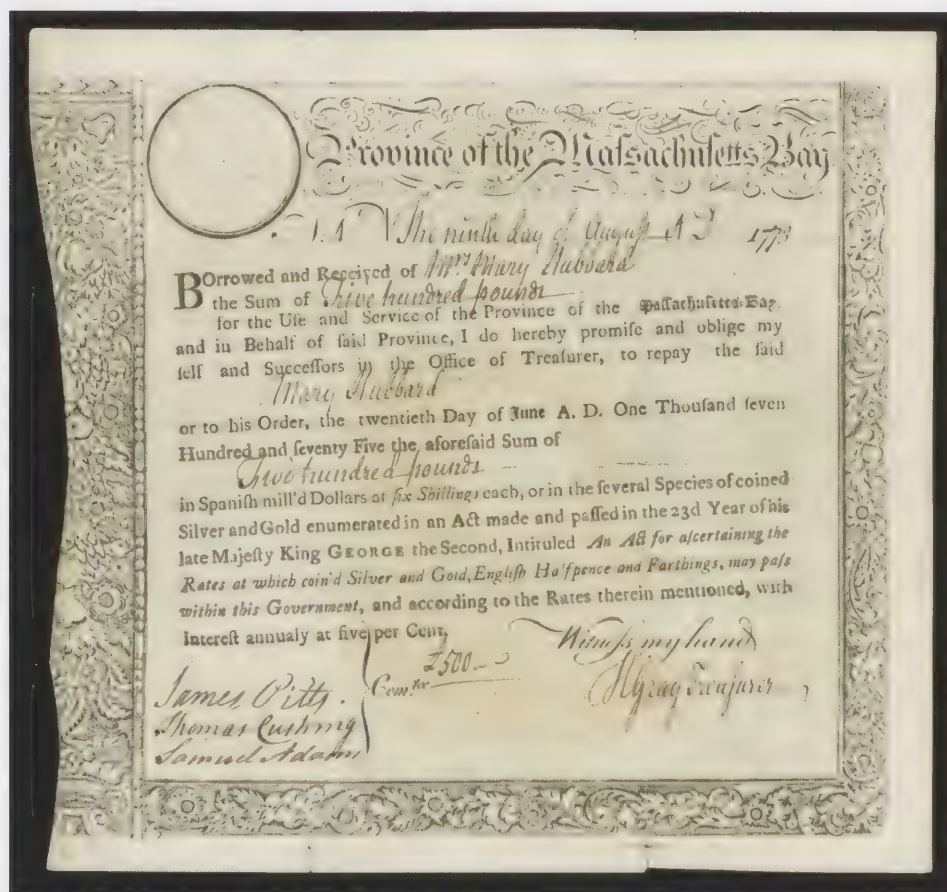 Province of the Maſſachuſetts Bay
The ninth day of Auguſt A D 1773
BOrrowed and Received of Mrs Mary Hubbard
the Sum of Five hundred pounds
for the Uſe and Service of the Province of the Maſſachuſetts-Bay.
and in Behalf of ſaid Province, I do hereby promiſe and oblige my
ſelf and Succeſſors in the Office of Treaſurer, to repay the ſaid
Mary Hubbard
or to his Order, the twentieth Day of June A. D. One Thouſand ſeven
Hundred and ſeventy Five the aforeſaid Sum of
Five hundred pounds
in Spaniſh mill'd Dollars at ſix Shillings each, or in the ſeveral Species of coined
Silver and Gold enumerated in an Act made and paſſed in the 23d Year of his
late Majeſty King GEORGE the Second, Intituled An Act for aſcertaining the
Rates at which coin'd Silver and Gold, Engliſh Halfpence and Farthings, may paſs
within this Government, and according to the Rates therein mentioned, with
Intereſt annualy at five per Cent,
Witneſs my hand
£500
James Pitts.
Comtee
HGray Treaſurer
Thomas Cushing
Samuel Adams